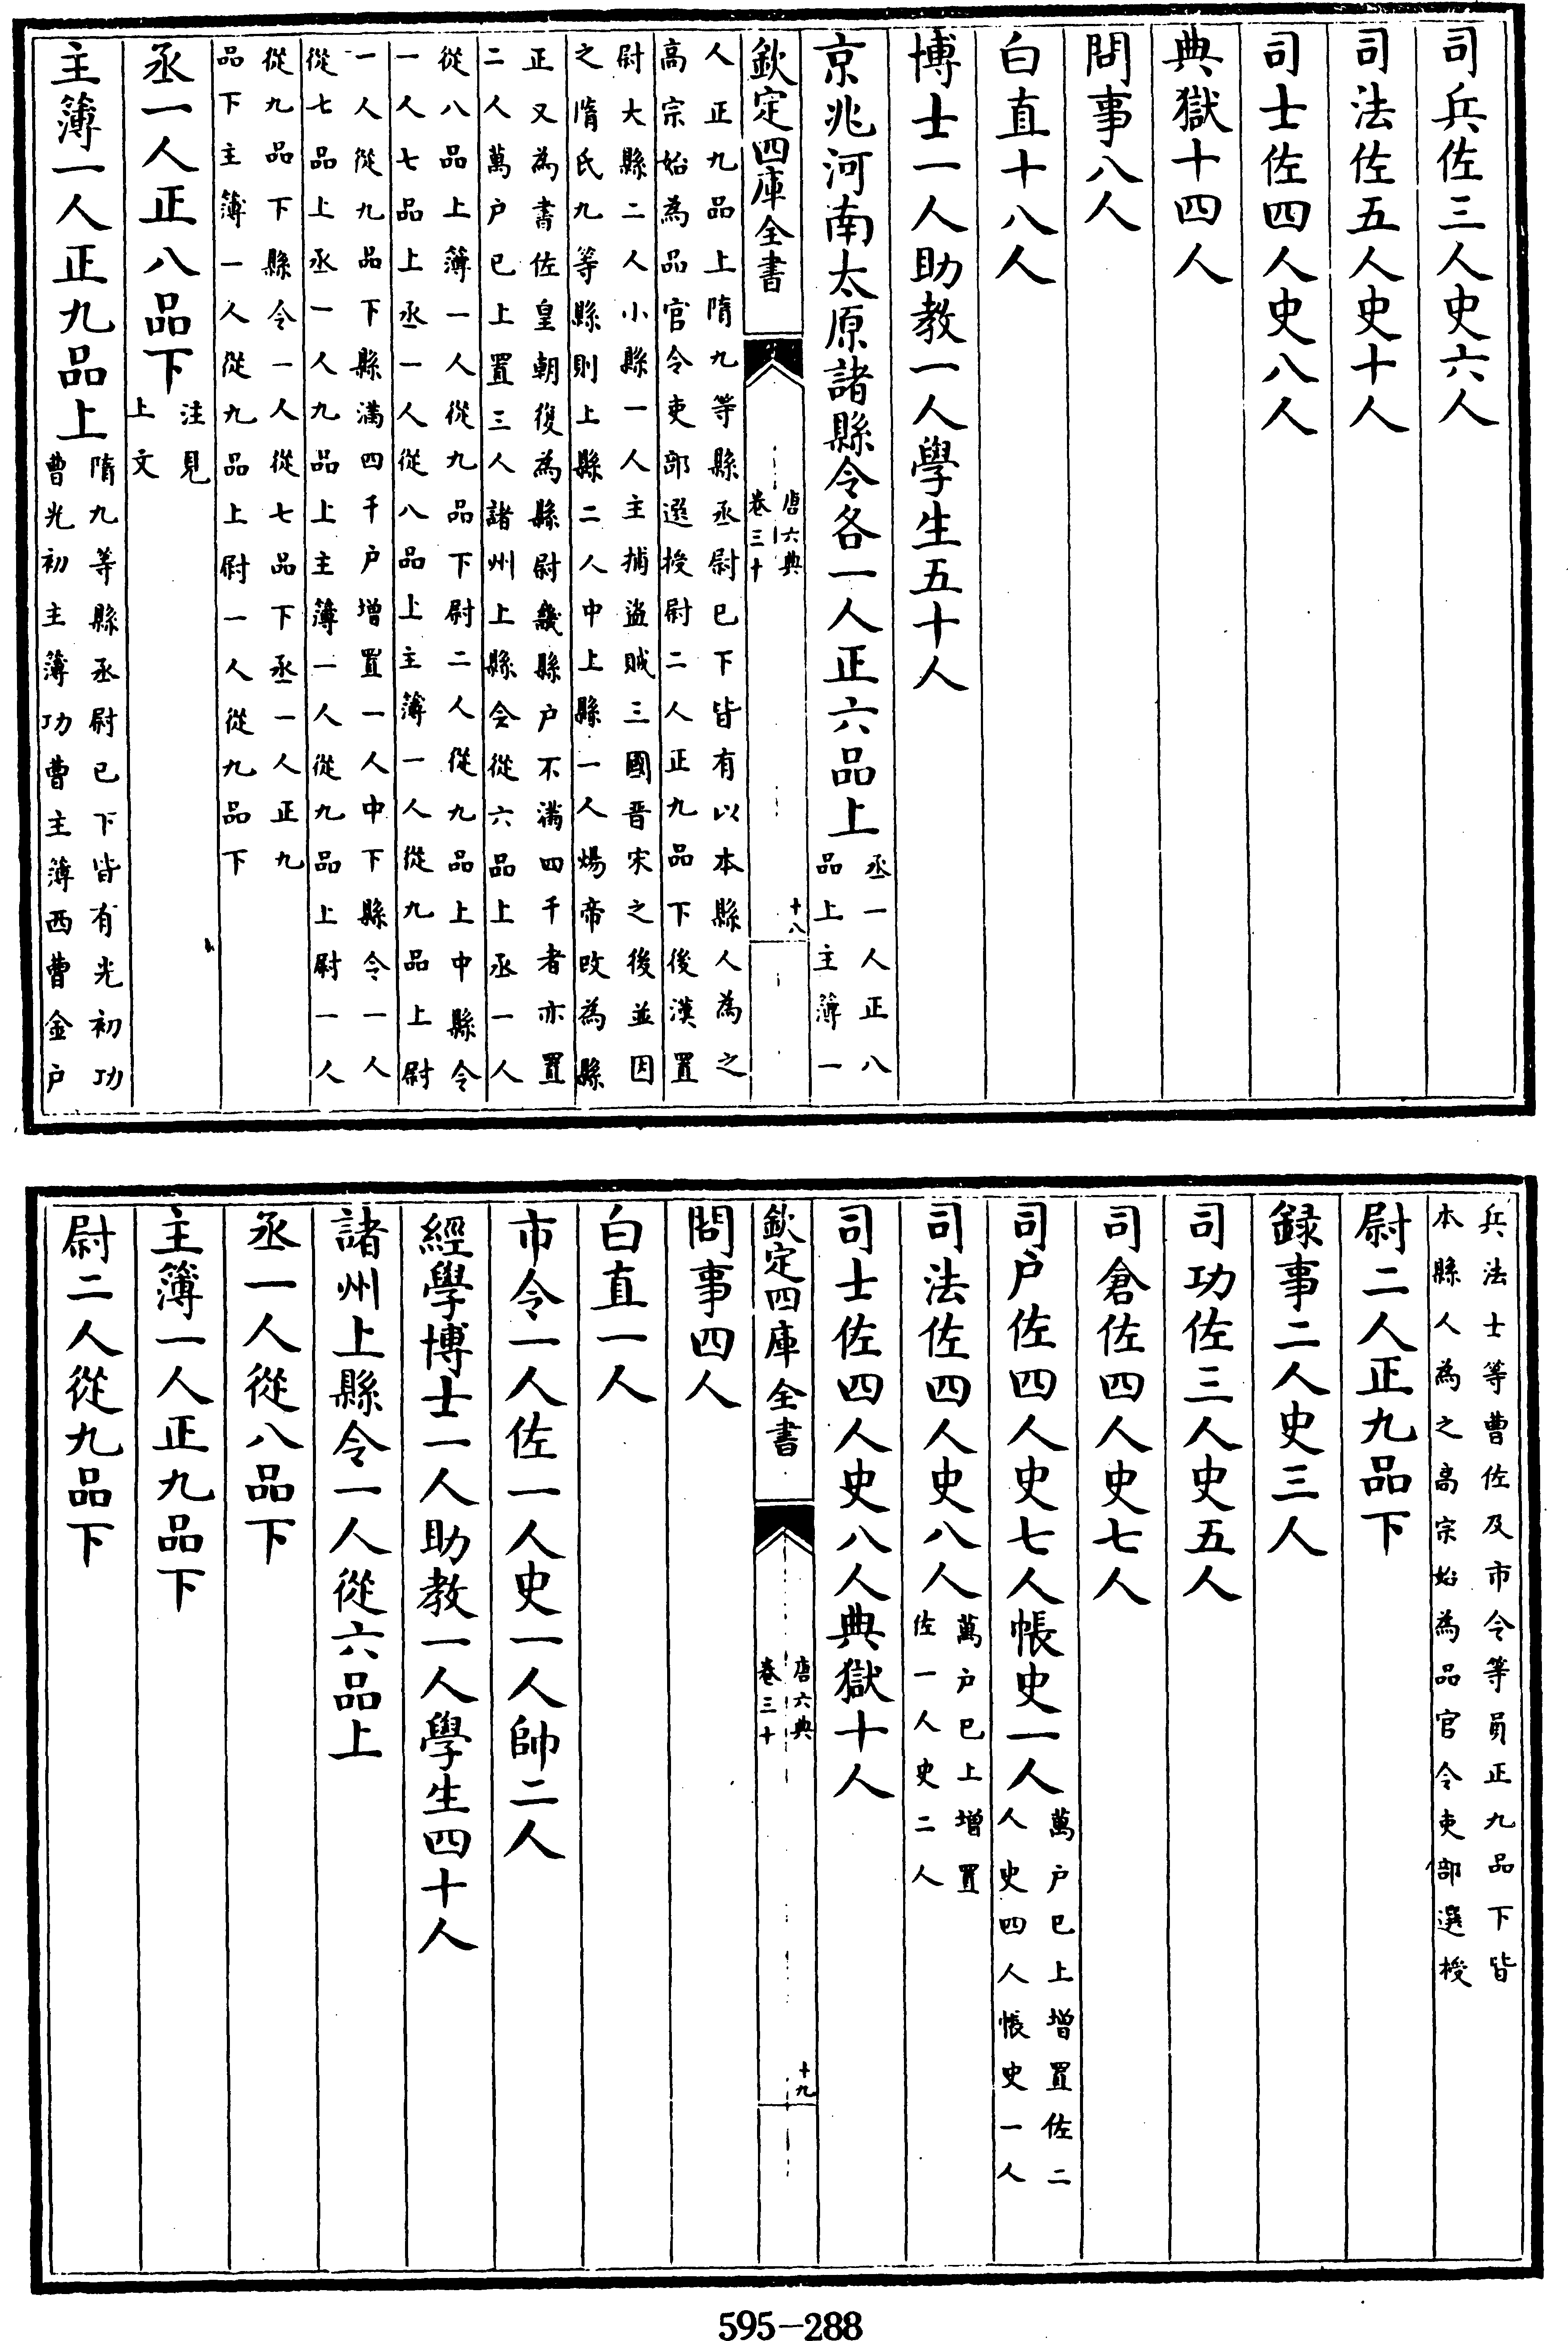 司兵佐三人史六人
司法佐五人史十人
司士佐四人史八人
典獄十四人
問事八人
白直十八人
博士一人助教一人學生五十人
京兆河南太原諸縣令各一人正六品上丞一人正八
品上主簿一
欽定四庫全書
唐六典
卷三十
十八
人正九品上隋九等縣丞尉已下皆有以本縣人為之
高宗始為品官令吏部選授尉二人正九品下後漢置
尉大縣二人小縣一人主捕盜賊三國晋宋之後並因
之隋氏九等縣則上縣二人中上縣一人煬帝改為縣
正又為書佐皇朝復為縣尉畿縣户不滿四千者亦置
二人萬户已上置三人諸州上縣令從六品上丞一人
從八品上簿一人從九品下尉二人從九品上中縣令
一人七品上丞一人從八品上主簿一人從九品上尉
一人從九品下縣滿四千户增置一人中下縣令一人
從七品上丞一人九品上主簿一人從九品上尉一人
從九品下縣令一人從七品下丞一人正九
品下主簿一人從九品上尉一人從九品下
丞一人正八品下注見
上文
主簿一人正九品上隋九等縣丞尉已下皆有光初功
曹光初主簿功曹主簿西曹金户
兵法士等曹佐及市令等員正九品下皆
本縣人為之高宗始為品官令吏部選授
尉二人正九品下
録事二人史三人
司功佐三人史五人
司倉佐四人史七人
司户佐四人史七人帳史一人萬户已上增置佐二
人史四人帳史一人
司法佐四人史八人萬户已上增置
佐一人史二人
司士佐四人史八人典獄十人
欽定四庫全書
唐六典
卷三十
十九
問事四人
白直一人
市令一人佐一人史一人帥二人
經學博士一人助教一人學生四十人
諸州上縣令一人從六品上
丞一人從八品下
主簿一人正九品下
尉二人從九品下
595-288